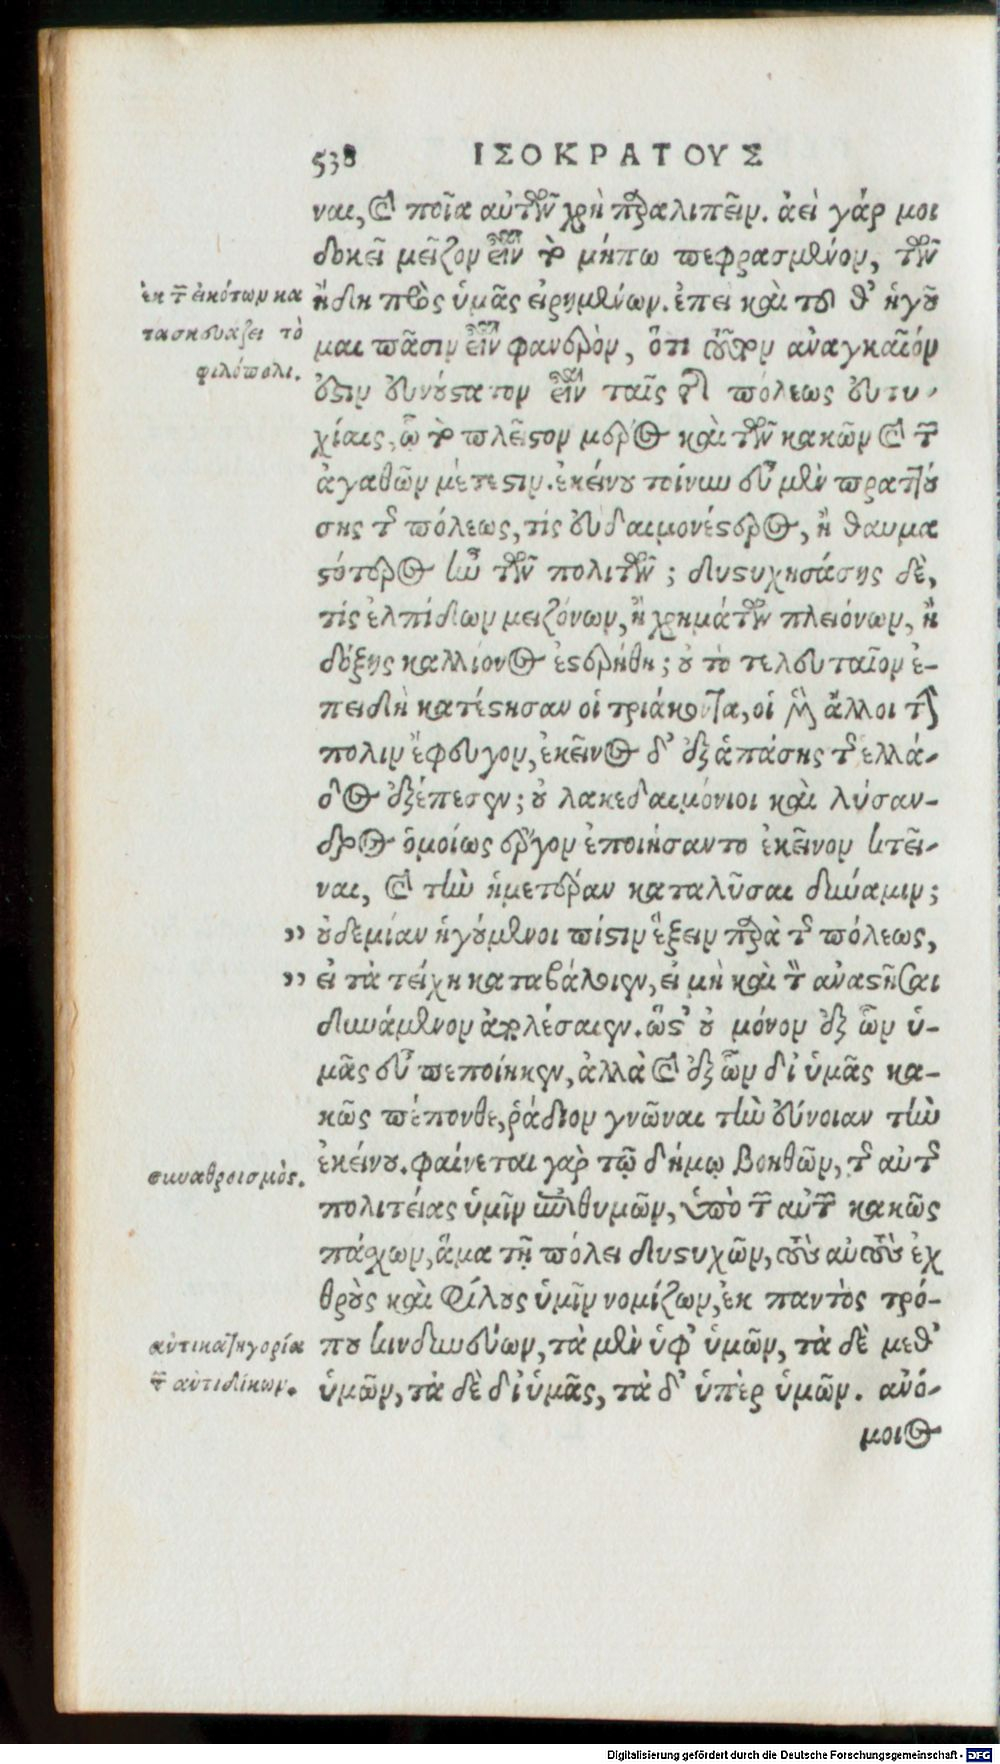 538 ΙΣΟΚΡΑΤΟΥΣ
ναι, καὶ ποῖα αὐτῶν χρὴ παραλιπεῖν. ἀεὶ γάρ μοι
δοκεῖ μεῖζον εἶναι τὸ μήπω πεφρασμένον, τῶν
ἤδη πρὸς ὑμᾶς εἰρημένων. ἐπεὶ καὶ τοῦθ' ἡγοῦ
μαι πᾶσιν εἶναι φανερὸν, ὅτι τοῦτον ἀναγκαῖόν
ἐστιν εὐνούστατον εἶναι ταῖς τῆς πόλεως εὐτυ-
χίαις, ᾧ τὸ πλεῖστον μέρος καὶ τῶν κακῶν καὶ τῶν
ἀγαθῶν μέτεστιν. ἐκείνου τοίνυν εὖ μὲν πραττού
σης τῆς πόλεως, τίς εὐδαιμονέστερος, ἢ θαυμα
στότερος ἦν τῶν πολιτῶν; δυστυχησάσης δὲ,
τίς ἐλπίδων μειζόνων, ἢ χρημάτων πλειόνων, ἢ
δόξης καλλίονος ἐστερήθη; οὐ τὸ τελευταῖον ἐ-
πειδὴ κατέστησαν οἱ τριάκοντα, οἱ μὲν ἄλλοι τὴν
πόλιν ἔφευγον, ἐκεῖνος δ' ἐξ ἁπάσης τῆς ἑλλά-
δος ἐξέπεσεν; οὐ λακεδαιμόνιοι καὶ λύσαν-
δρος ὁμοίως ἔργον ἐποιήσαντο ἐκεῖνον κτεῖ-
ναι, καὶ τὴν ἡμετέραν καταλῦσαι δύναμιν;
„ οὐδεμίαν ἡγούμενοι πίστιν ἕξειν παρὰ τῆς πόλεως,
„ εἰ τὰ τείχη καταβάλοιεν, εἰ μὴ καὶ τὸν ἀναστῆσαι
δυνάμενον ἀπολέσαιεν. ὥστ' οὐ μόνον ἐξ ὧν ὑ-
μᾶς εὖ πεποίηκεν, ἀλλὰ καὶ ἐξ ὧν δι' ὑμᾶς κα-
κῶς πέπονθε, ῥάδιον γνῶναι τὴν εὔνοιαν τὴν
ἐκείνου. φαίνεται γὰρ τῷ δήμῳ βοηθῶν, τῆς αὐτῆς
πολιτείας ὑμῖν ἐπιθυμῶν, ὑπὸ τῶν αὐτῶν κακῶς
πάσχων, ἅμα τῇ πόλει δυστυχῶν, τοὺς αὐτοὺς ἐχ
θροὺς καὶ φίλους ὑμῖν νομίζων, ἐκ παντὸς τρό-
που κινδυνεύων, τὰ μὲν ὑφ' ὑμῶν, τὰ δὲ μεθ'
ὑμῶν, τὰ δὲ δι' ὑμᾶς, τὰ δ' ὑπὲρ ὑμῶν. ἀνό-
μοιος
ἐκ τῶν εἰκότων κα
τασκευάζει τὸ
φιλόπολι.
συναθροισμὸς.
ἀντικατηγορία
τῶν ἀντιδίκων.
Digitalisierung gefördert durch die Deutsche Forschungsgemeinschaft - DFG